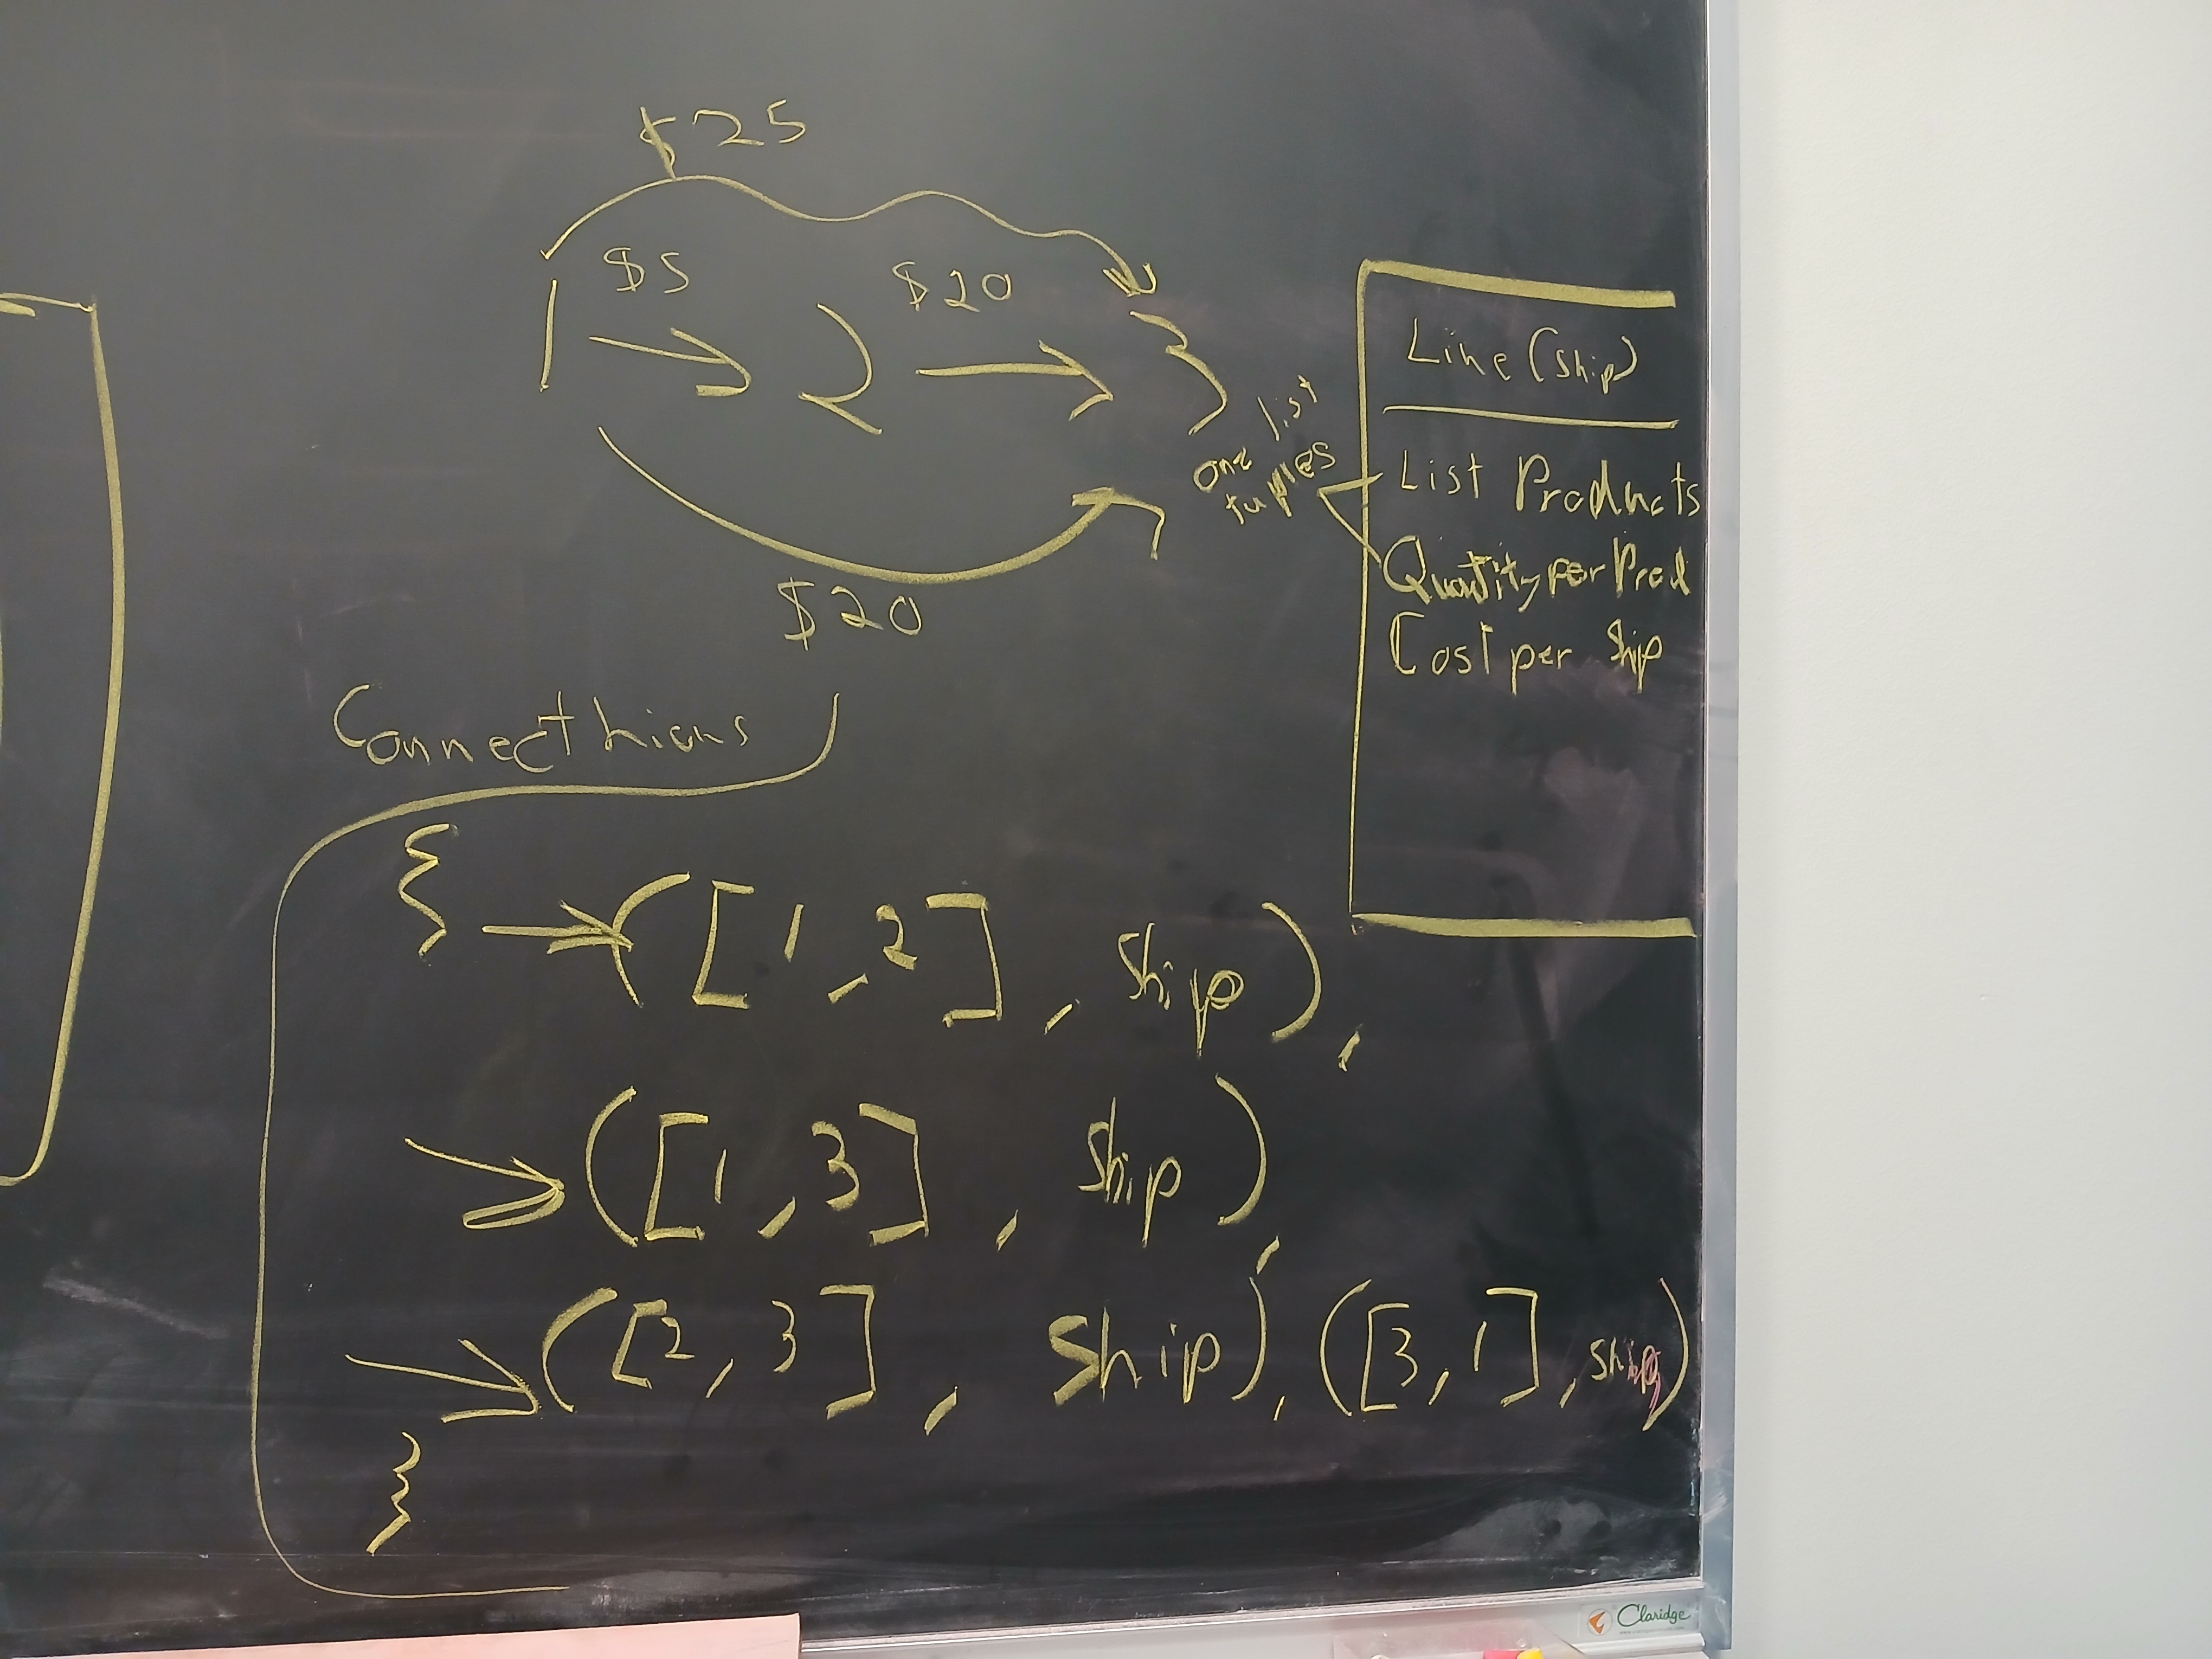 $25
$5
$20
1 → 2 → 3
$20
one list
tuples
Line (Ship)
List Products
Quantity per Prod
Cost per Ship
Connecthions
{ → ([1, 2], Ship),
→ ([1, 3], Ship),
→ ([2, 3], Ship), ([3, 1], Ship)
}
Claridge